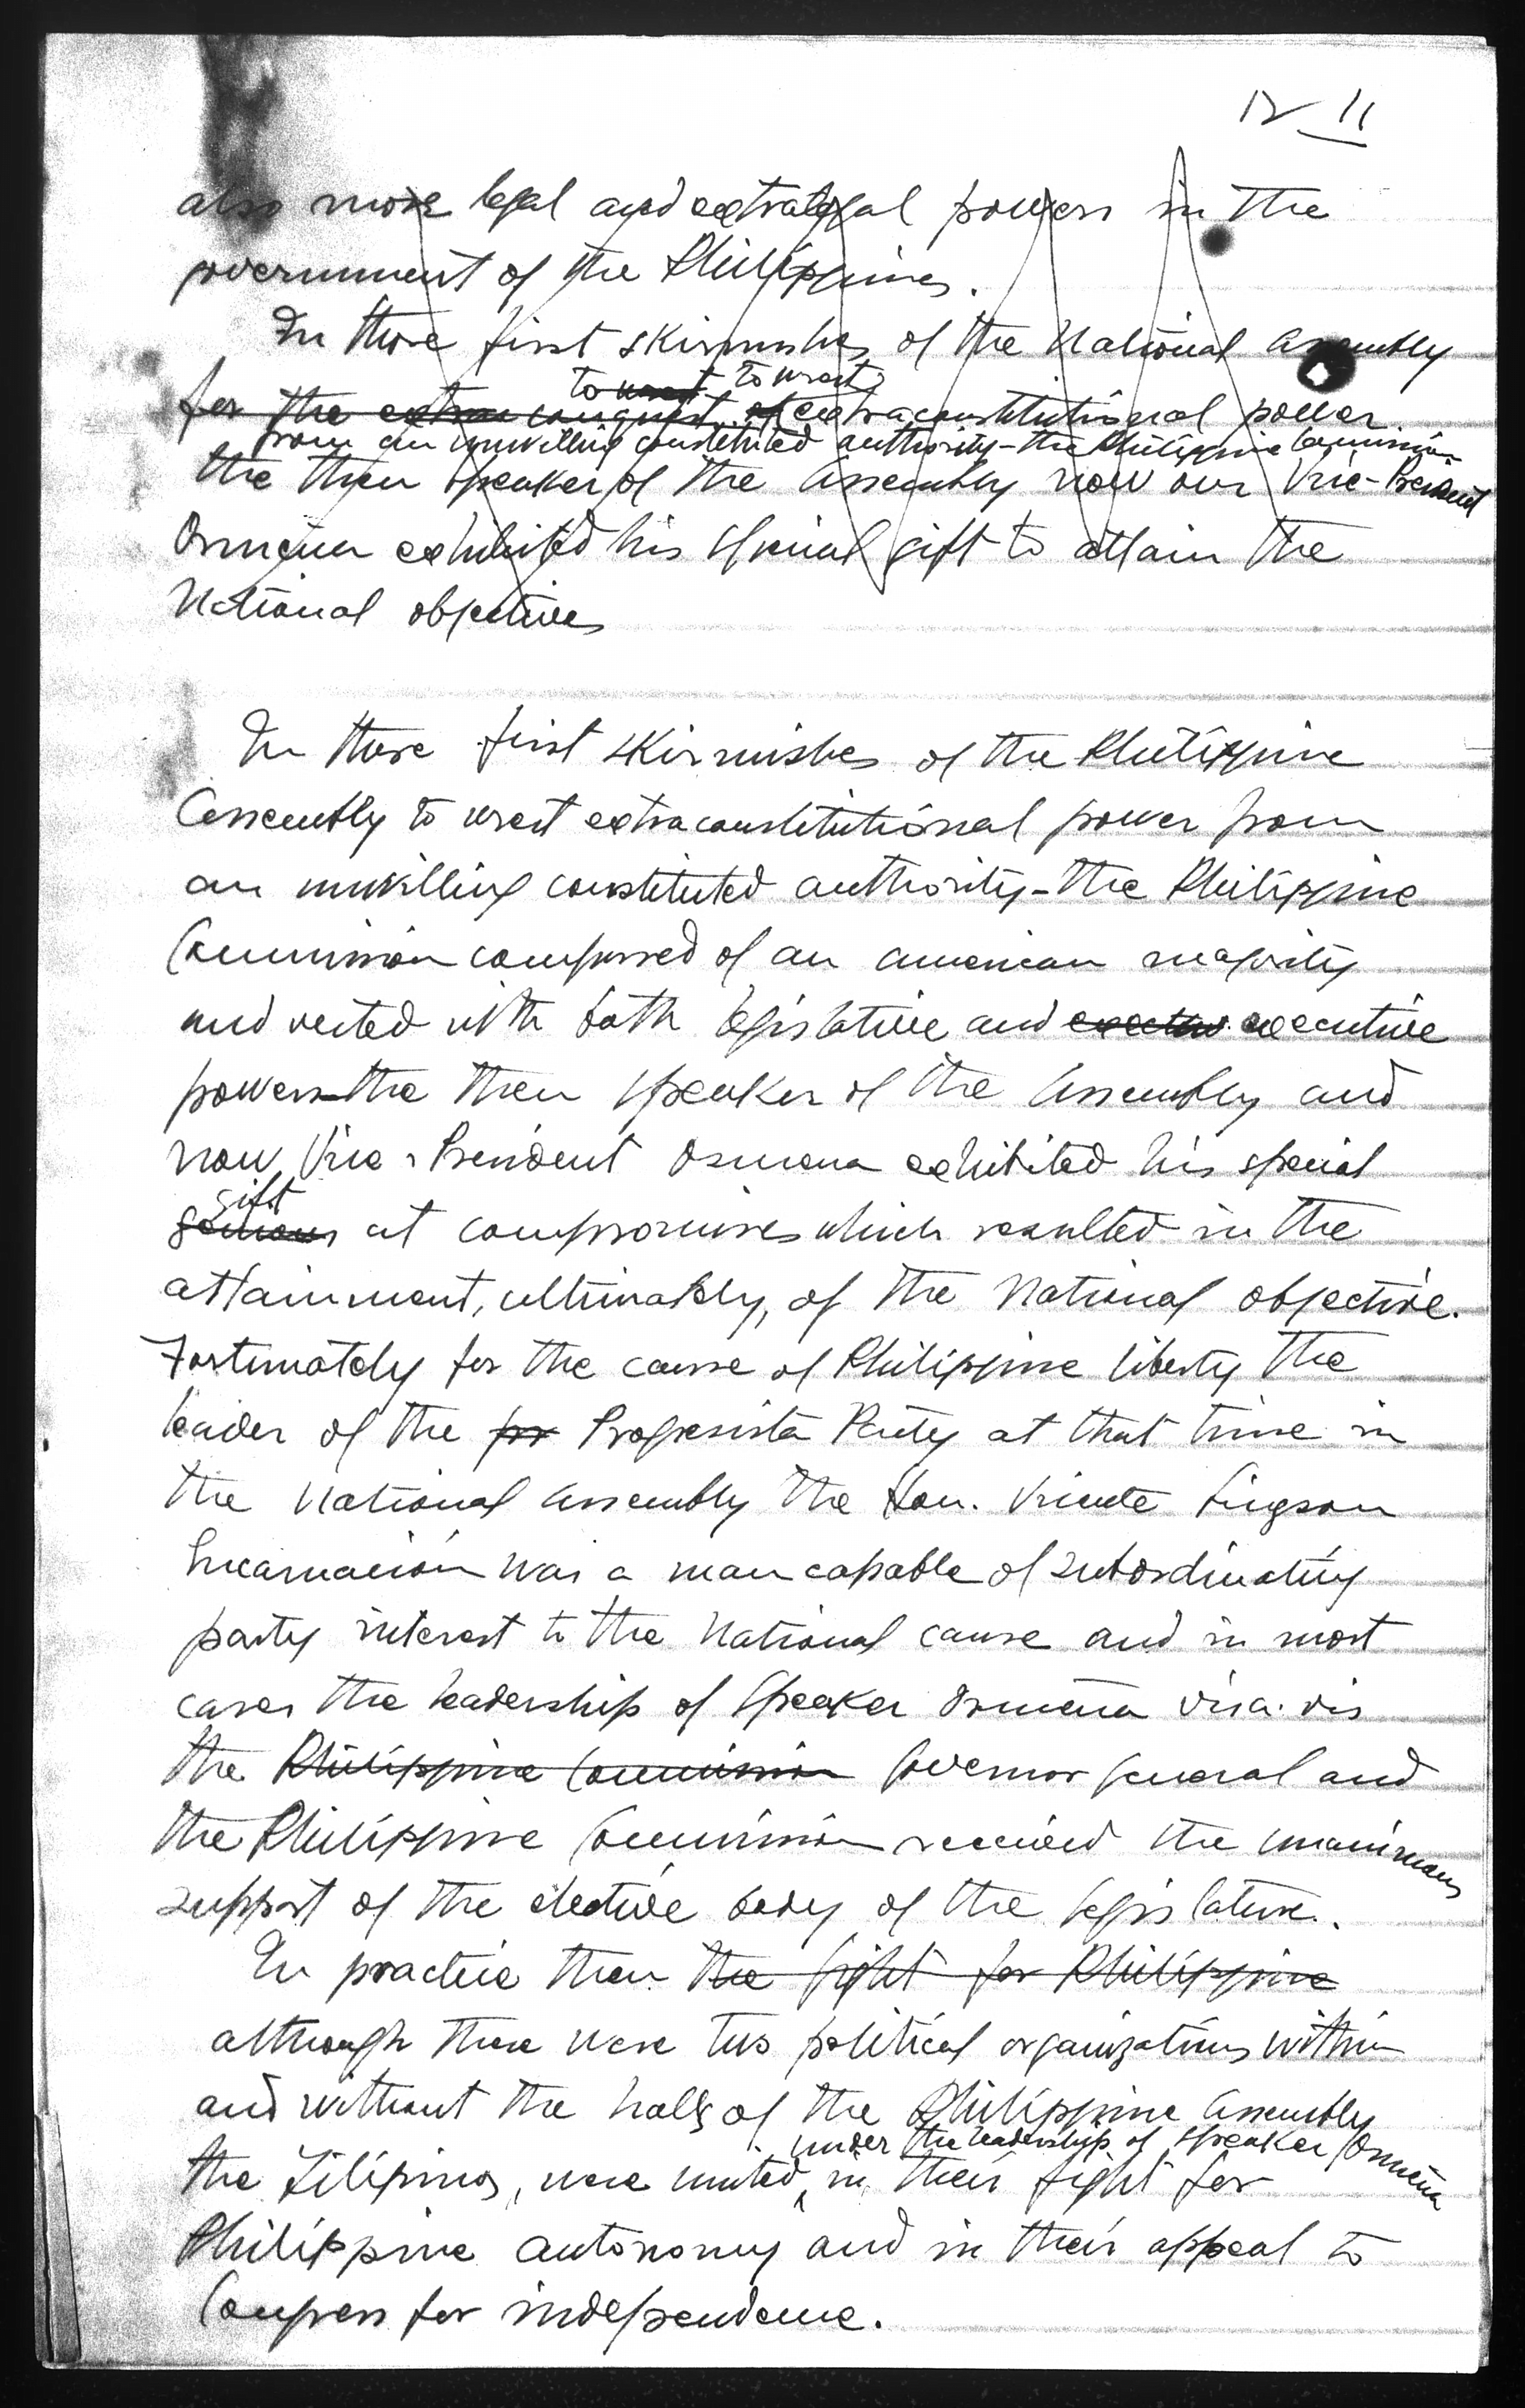 12 11
also more legal and extralegal powers in the
government of the Philippines.
In those first skirmishes of the National Assembly
to wrest to wrest
for the extra conquest of extraconstitutional power
from an unwilling constituted authority - the Philippine Commission
the then Speaker of the Assembly now our Vice-President
Osmeña exhibited his special gift to attain the
National objectives
In those first skirmishes of the Philippine
Assembly to wrest extraconstitutional power from
an unwilling constituted authority - the Philippine
Commission composed of an American majority
and vested with both legislative and executive
powers - the then Speaker of the Assembly and
now Vice-President Osmena exhibited his special
gift
at compromises which resulted in the
attainment, ultimately, of the National objective.
Fortunately for the cause of Philippine liberty the
leader of the pr Progresista Party at that time in
the National Assembly the Hon. Vicente Singson
Incarnación was a man capable of subordinating
party interest to the National cause and in most
cases the leadership of Speaker Osmeña vis a vis
the Philippine Commission Governor General and
the Philippine Commission received the unanimous
support of the elective body of the legislature.
In practice then the fight for Philippine
although there were two political organizations within
and without the halls of the Philippine Assembly
under the leadership of Speaker Osmeña
the Filipinos, were united, in their fight for
Philippine autonomy and in their appeal to
Congress for independence.